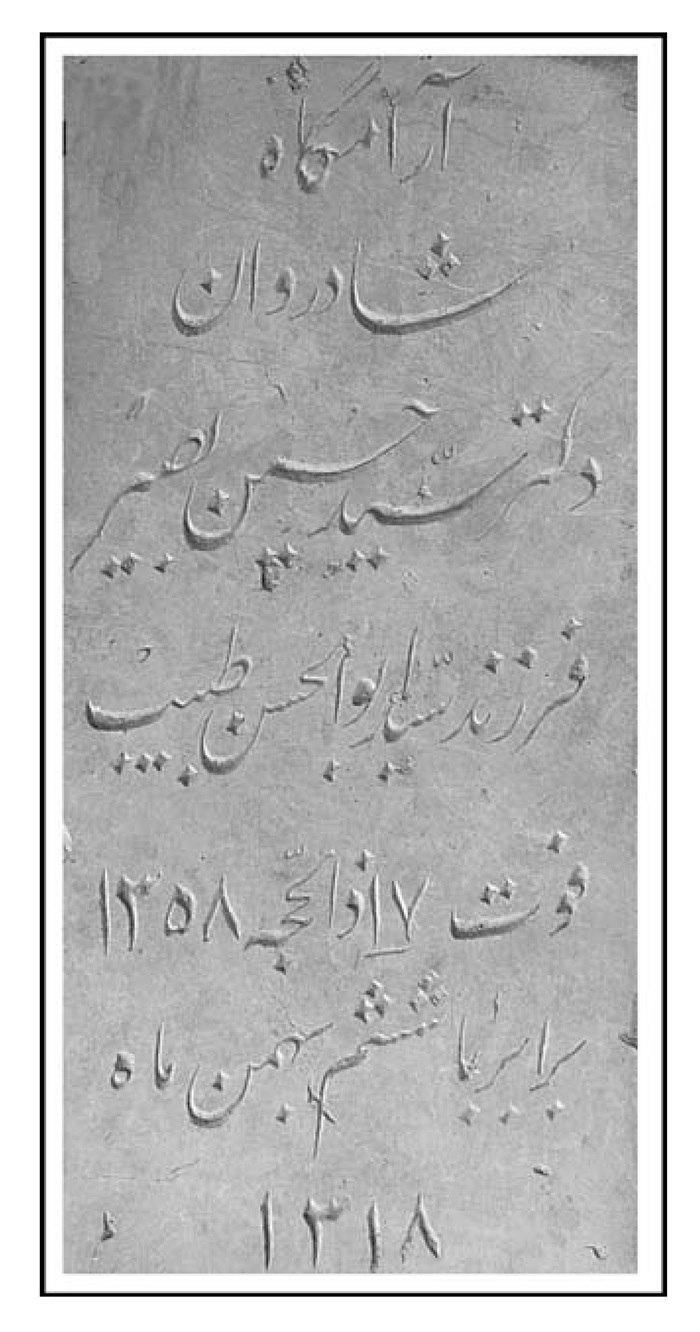 آرامگاه
شادروان
دکتر سیّد حسین نصیر
فرزند سیّد ابوالحسن طبیب
فوت ۱۷ ذالحّجه ۱۳۵۸
برابر با ششم بهمن ماه
۱۳۱۸